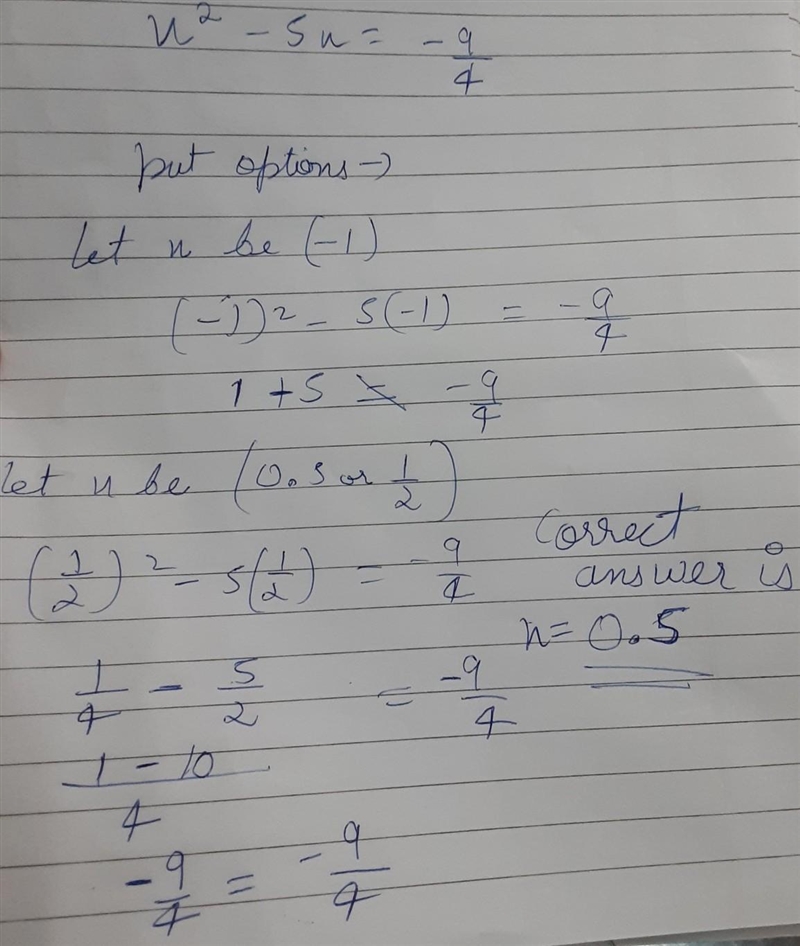 x² - 5x = -9/4
put options →
Let x be (-1)
(-1)² - 5(-1) = -9/4
1 + 5 ≠ -9/4
Let x be (0.5 or 1/2)
(1/2)² - 5(1/2) = -9/4
correct answer is
x = 0.5
1/4 - 5/2 = -9/4
(1 - 10)/4
-9/4 = -9/4